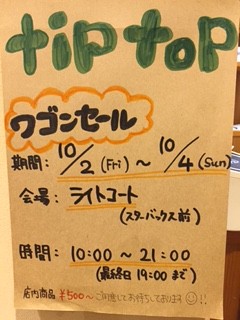 tip top
ワゴンセール
期間: 10/2(Fri) ～ 10/4(Sun)
会場: ライトコート
(スターバックス前)
時間: 10:00～21:00
(最終日 19:00 まで)
店内商品 ¥500～ ご用意してお待ちしております!!